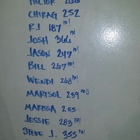 CHIRAG 252
R.J 187
JOSH 366
JASON 247
BILL 267
WENDI 268
MARISOL 239
MARISSA 205
JESSIE 283
STEVE J. 355